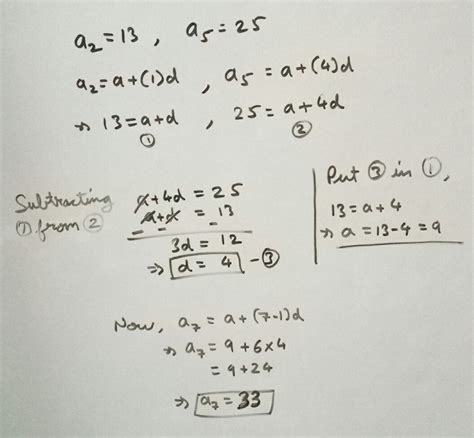 a₂ = 13 , a₅ = 25
a₂ = a + (1)d , a₅ = a + (4)d
⇒ 13 = a + d , 25 = a + 4d
① ②
Subtracting
① from ②
a + 4d = 25
a + d = 13
- - -
3d = 12
⇒ d = 4 - ③
Put ③ in ①,
13 = a + 4
⇒ a = 13 - 4 = 9
Now, a₇ = a + (7-1)d
⇒ a₇ = 9 + 6 × 4
= 9 + 24
⇒ a₇ = 33